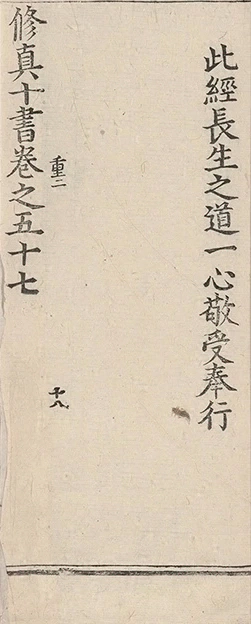 此經長生之道一心敬受奉行
重二
十八
修真十書卷之五十七